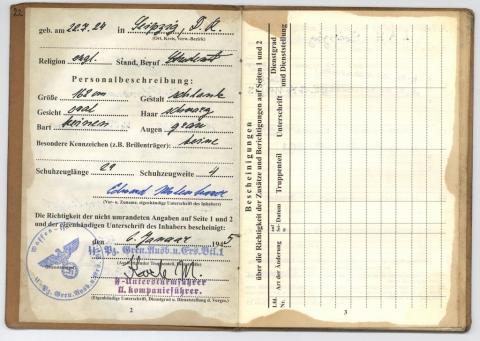 22
geb. am 22.7.24 in Leipzig, D. R.
(Ort, Kreis, Verw.-Bezirk)
Religion evgl. Stand, Beruf Student
Personalbeschreibung:
Größe 168 cm Gestalt schlank
Gesicht oval Haar schwarz
Bart keinen Augen grau
Besondere Kennzeichen (z.B. Brillenträger): keine
Schuhzeuglänge 29 Schuhzeugweite 4
Eduard
(Vor- u. Zuname, eigenhändige Unterschrift des Inhabers)
Die Richtigkeit der nicht umrandeten Angaben auf Seite 1 und 2
und der eigenhändigen Unterschrift des Inhabers bescheinigt:
den 6. Januar 1945
Pz. Gren. Ausb. u. Ers. Btl. 1
Karl M.
Untersturmführer
II. Kompanieführer.
(Eigenhändige Unterschrift, Dienstgrad u. Dienststellung d. Vorges.)
2
Bescheinigungen
über die Richtigkeit der Zusätze und Berichtigungen auf Seiten 1 und 2
Lfd. Nr.
Art der Änderung
auf Seite
Datum
Truppenteil
Unterschrift
Dienstgrad
und Dienststellung
3